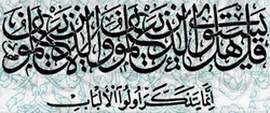 قل هل يستوي الذين يعلمون والذين لا يعلمون
إنما يتذكر أولوا الألباب